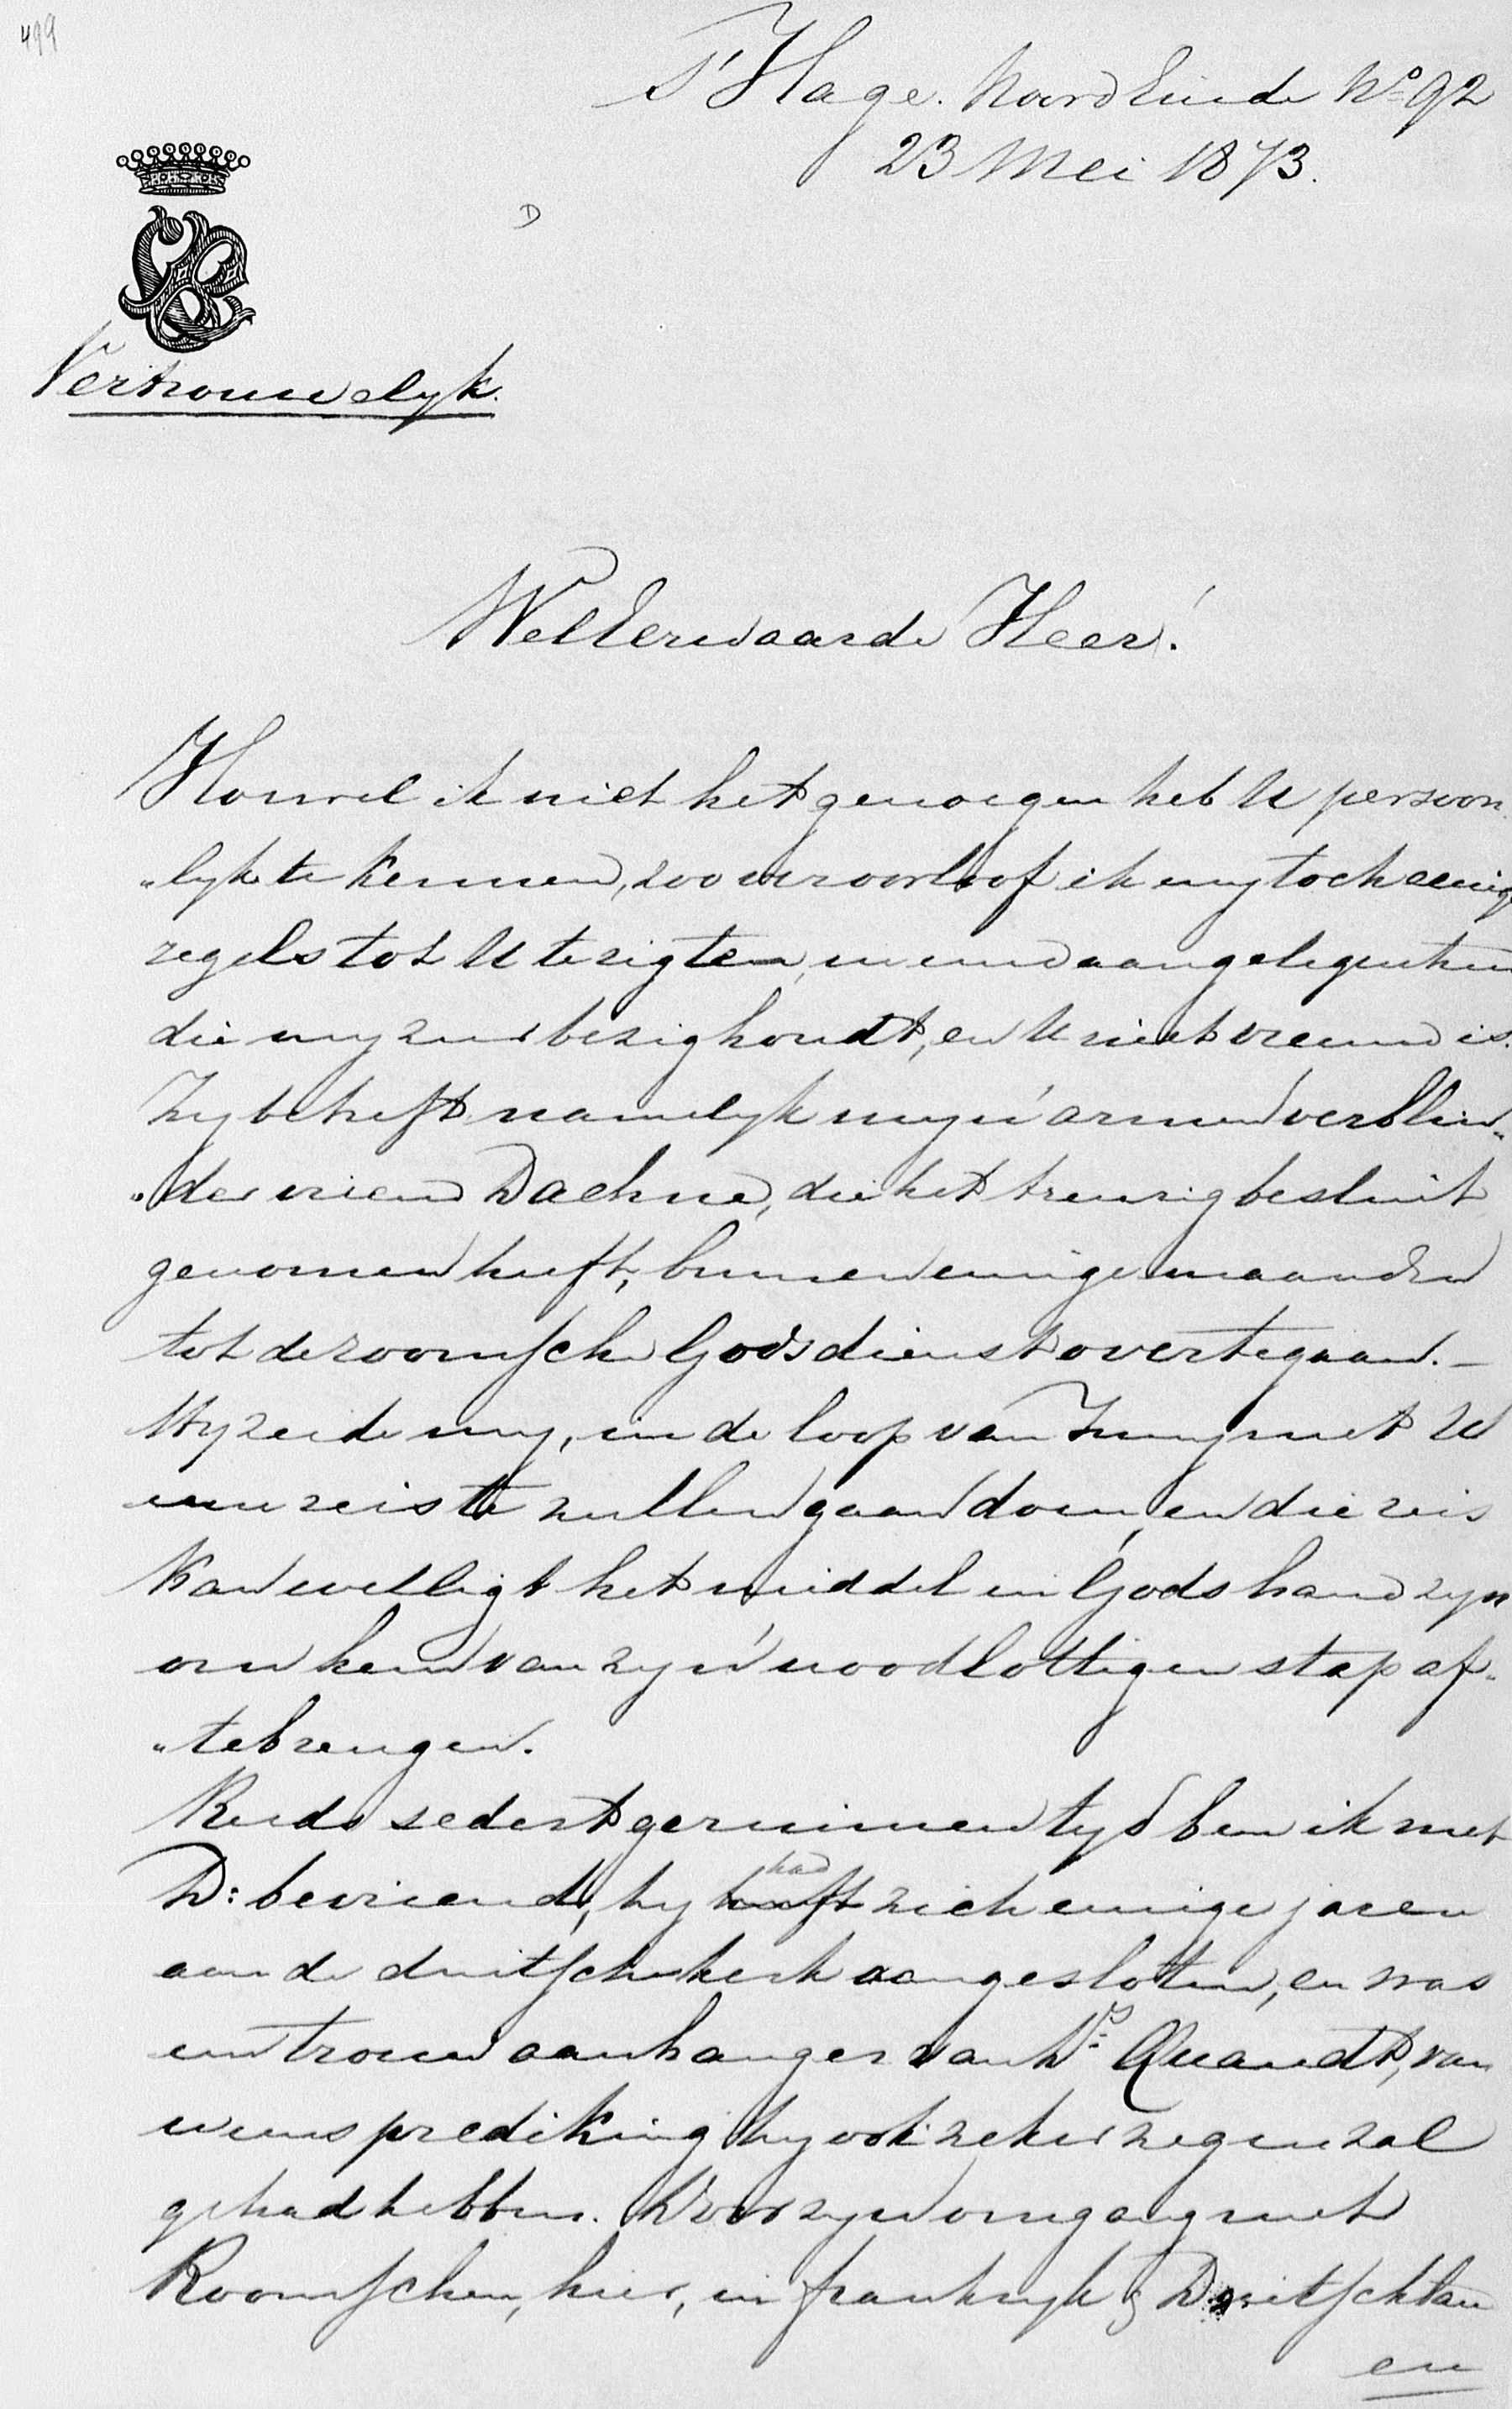 499
s'Hage. Noordeinde No 92
23 Mei 1873.
D
Vertrouwelyk.
WelEerwaarde Heer!
Hoewel ik niet het genoegen heb U persoon
"lyk te kennen, zoo veroorloof ik my toch eenige
regels tot U te rigten, in eene aangelegenheid
die my zeer bezighoudt, en U niet vreemd is.
Zy betreft namelyk myn' armen verblin"
"den vriend Daehne, die het treurig besluit
genomen heeft, binnen eenige maanden
tot de roomsche Godsdienst overtegaan. –
Hy zeide my, in de loop van Juny met U
eene reis te zullen gaan doen, en die reis
kan welligt het middel in Gods hand zyn
om hem van zyn' noodlottigen stap af"
"tebrengen.
Reeds sedert geruimen tyd ben ik met
D: bevriend, hy heeft had zich eenige jaren
aan de duitsche kerk aangesloten, en was
een trouw aanhanger van Ds Quandt, van
wiens prediking hy ook zeker zegen zal
gehad hebben. Door zyn omgang met
Roomschen, hier, in frankryk & Duitschlan
en